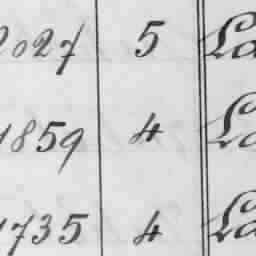 2027 5 La
1859 4 La
1735 4 La